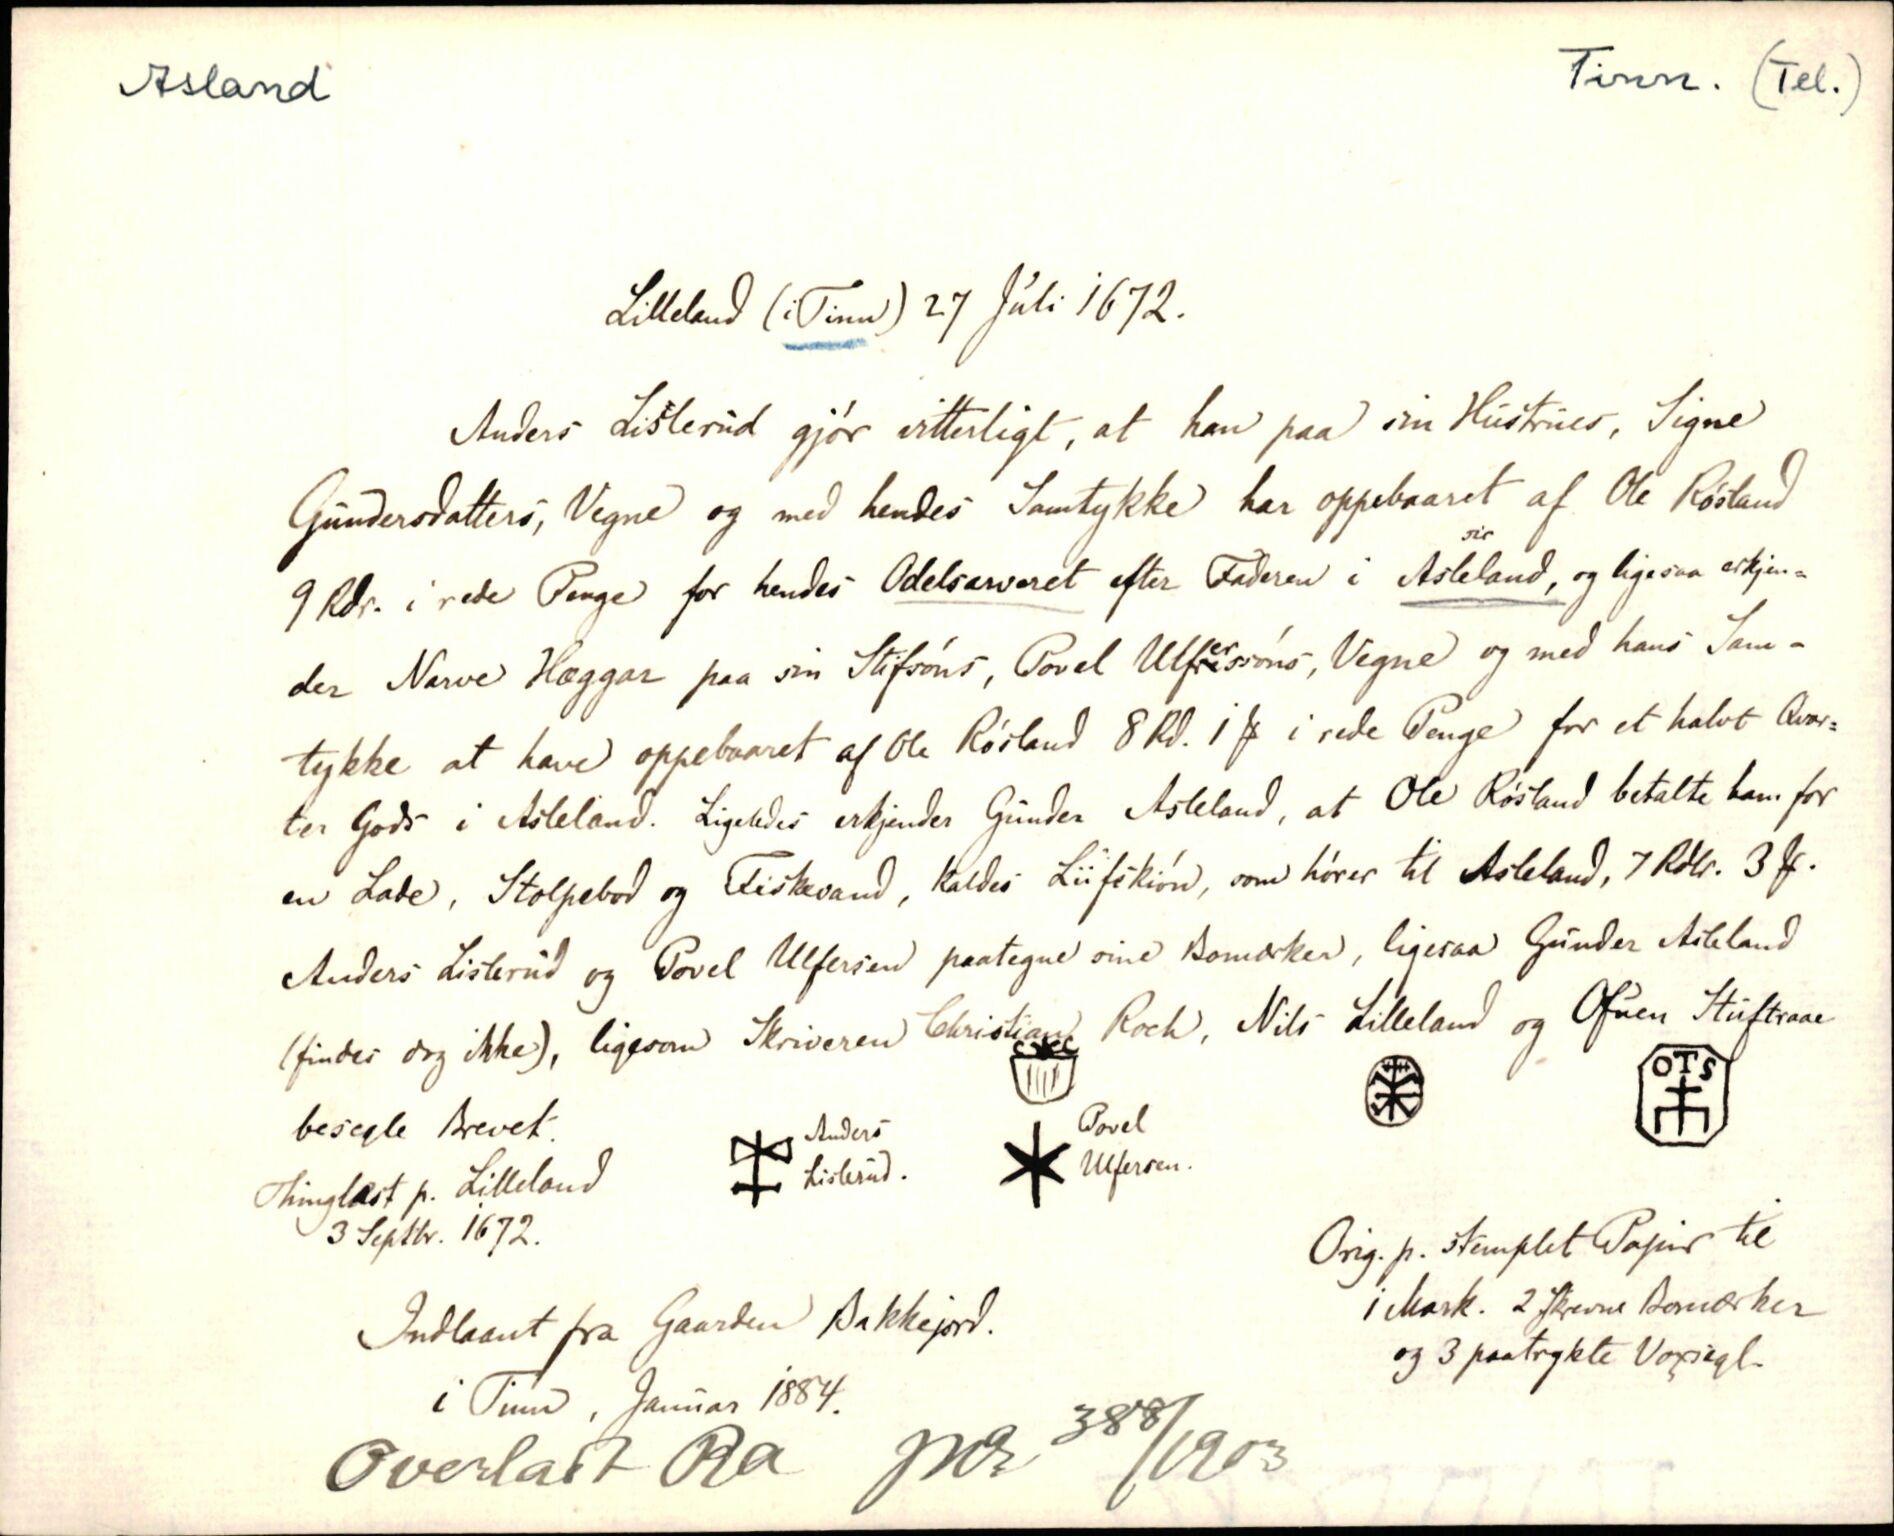 Asland
Tinn. (Tel.)
Lilleland (i Tinn) 27 Júli 1672.
Anders Lislerud gjór vitterligt, at han paa sin Hústrúes, Signe
Gúndersdatters, Vegne og med hendes Samtykke har oppebaaret af Ole Rósland
sic
9 Rdr. i rede Penge for hendes Odelsarveret efter Faderen i Asleland, og ligesaa erkjen=
der Narve Hæggar paa sin Stifsóns, Povel Ulferssóns, Vegne og med hans Sam-
tykke at have oppebaaret af Ole Rósland 8 Rd. 1 ƒ i rede Penge for et halvt Qvar=
ter Gods i Asleland. Ligeledes erkjender Gúnder Asleland, at Ole Rósland betalte ham for
en Lade, Stolpebod og Fiskevand, kaldes Liifskión, som hórer til Asleland, 7 Rdlr. 3 ƒ.
Anders Lislerúd og Povel Ulfersen paategne sine Bomærker, ligesaa Gúnder Asleland
(findes dog ikke), ligesom Skriveren Christian Roch, Nils Lilleland og Ofúen Stúftraae
OTS
besegle Brevet.
Anders
Lislerúd.
Povel
Ulfersen.
Thinglæst p. Lilleland
3 Septbr. 1672.
Orig. p. stemplet Papiir til
1 Mark. 2 skrevne Bomærker
og 3 paatrykte Voxsegl.
Indlaant fra Gaarden Bakkejord.
i Tinn, Januar 1884.
Overlatt Ra 388/1903